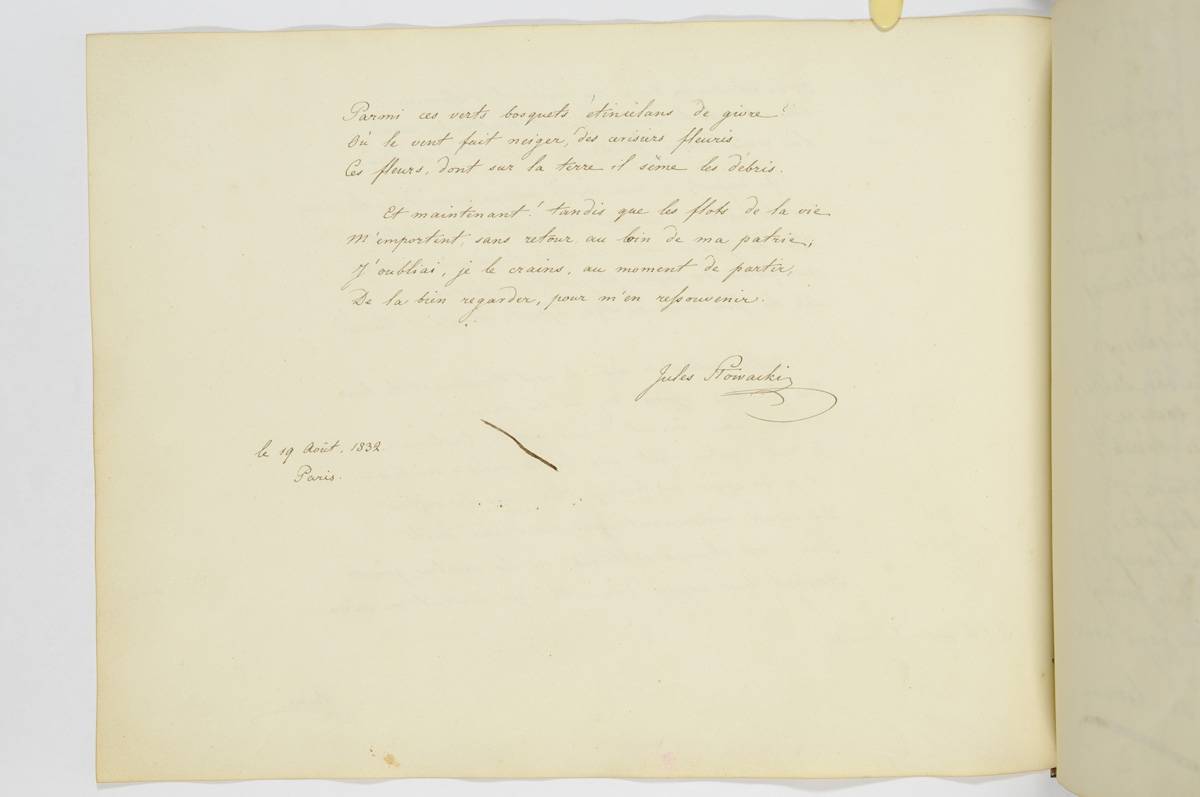 Parmi ces verts bosquets étincelans de givre?
Où le vent fait neiger, des cerisiers fleuris
Ces fleurs, dont sur la terre il sême les débris.
Et maintenant! tandis que les flots de la vie
M'emportent, sans retour, au loin de ma patrie,
J'oubliai, je le crains, au moment de partir,
De la bien regarder, pour m'en ressouvenir.
Jules Słowacki
le 19 Août, 1832.
Paris.